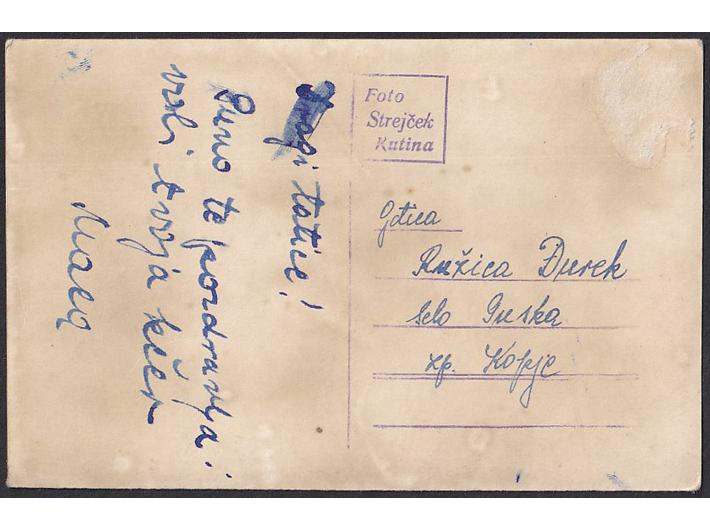 Dragi tatice!
Puno te pozdravlja i
voli tvoja kćer
Foto
Strejček
Kutina
Gđica
Ružica Đurek
selo Guska
zp. Kopje